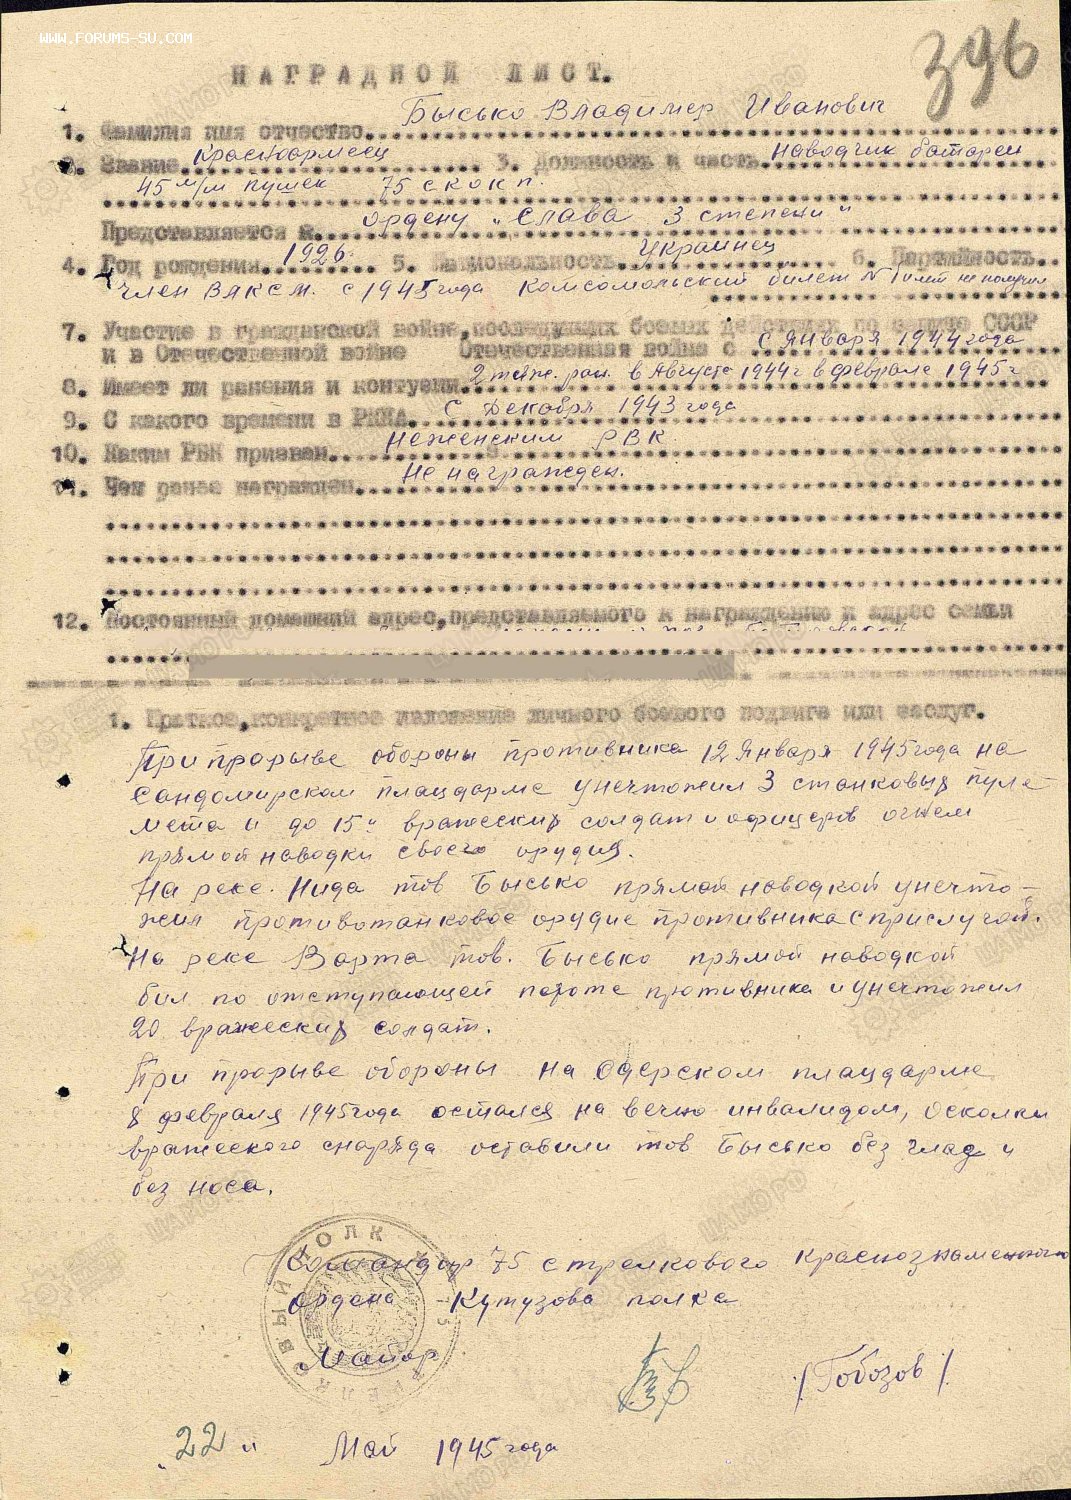 WWW.FORUMS-SU.COM
396
НАГРАДНОЙ ЛИСТ.
Бысько Владимер Иванович
1. Фамилия имя отчество
2. Звание Красноармеец 3. Должность и часть наводчик батареи
45 м/м пушек 75 с к о к п.
Представляется к ордену "Слава 3 степени"
4. Год рождения 1926. 5. Национальность Украинец 6. Партийность
член ВЛКСМ. с 1945 года Комсомольский билет № не получил
7. Участие в гражданской войне, последующих боевых действиях по защите СССР
и в Отечественной войне Отечественная война с с Января 1944 года
8. Имеет ли ранения и контузии 2 тяж. ран. в Августе 1944 г в феврале 1945 г
9. С какого времени в РККА с Декабря 1943 года
10. Каким РВК призван Неженским РВК.
11. Чем ранее награжден Не награжден.
12. Постоянный домашний адрес, представляемого к награждению и адрес семьи
1. Краткое, конкретное изложение личного боевого подвига или заслуг.
При прорыве обороны противника 12 Января 1945 года на
Сандомирском плацдарме унечтожил 3 станковых пуле-
мета и до 15 и вражеских солдат и офицеров огнем
прямой наводки своего орудия.
На реке. Нида тов Бысько прямой наводкой унечто-
жил противотанковое орудие противника с прислугой.
На реке Варта тов. Бысько прямой наводкой
бил по отступающей пехоте противника и унечтожил
20 вражеских солдат.
При прорыве обороны на Одерском плацдарме
8 февраля 1945 года остался на вечно инвалидом, Осколки
вражеского снаряда оставили тов Бысько без глаз и
без носа.
Командир 75 стрелкового Краснознаменного
ордена Кутузова полка
Майор /Гобозов/
"22" Май 1945 года